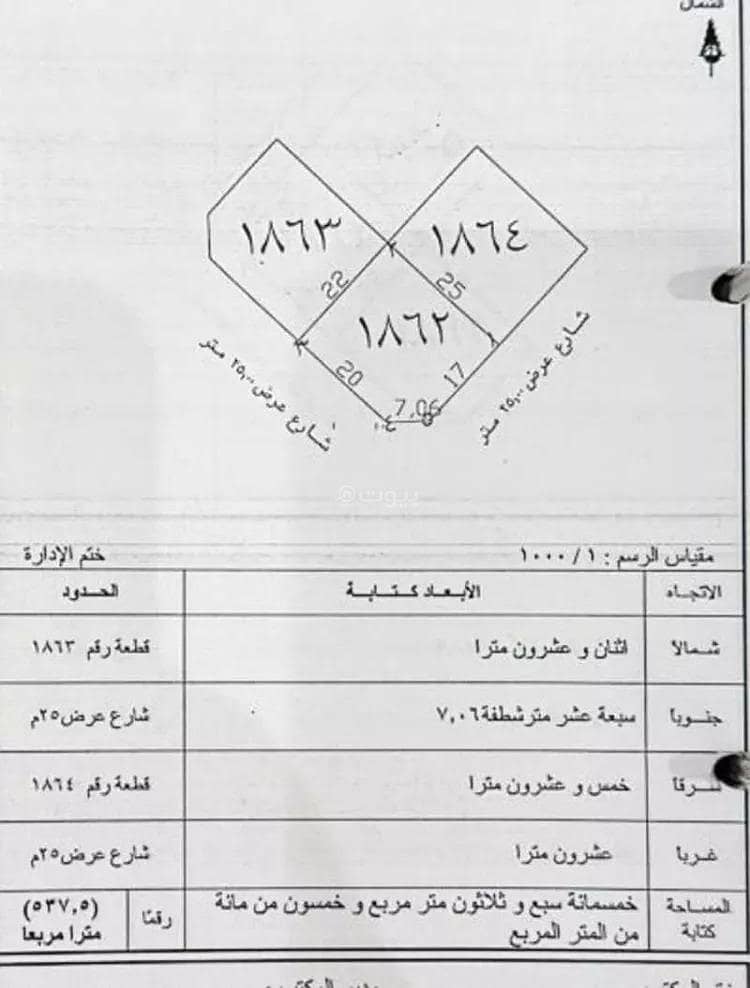 الشمال
١٨٦٣
١٨٦٤
22
25
١٨٦٢
20
17
7,06
شارع عرض ٢٥,٠٠ متر
شارع عرض ٢٥,٠٠ متر
@بيوت
مقياس الرسم : ١ / ١٠٠٠
ختم الإدارة
الاتجاه الأبعاد كتابة الحدود
شمالاً اثنان و عشرون مترا قطعة رقم ١٨٦٣
جنوباً سبعة عشر مترشطفة٧,٠٦ شارع عرض٢٥م
شرقاً خمس و عشرون مترا قطعة رقم ١٨٦٤
غرباً عشرون مترا شارع عرض٢٥م
المساحة كتابة خمسمائة سبع و ثلاثون متر مربع و خمسون من مائة
من المتر المربع
رقمًا (٥٣٧,٥)
مترا مربعا